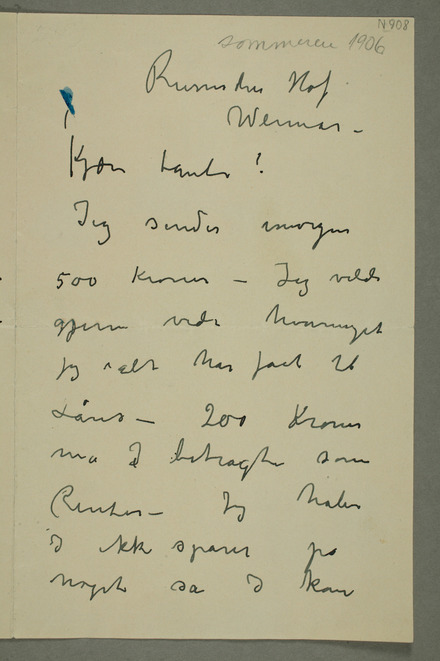 N 908
sommeren 1906
Russischer Hof
Weimar –
Kjære tante!
Jeg sender imorgen
500 Kroner – Jeg vilde
gjerne vide hvormeget
jeg ialt har faat til
Låns – 200 Kroner
må I betragte som
Renter – Jeg håber
I ikke sparer på
noget så I kan